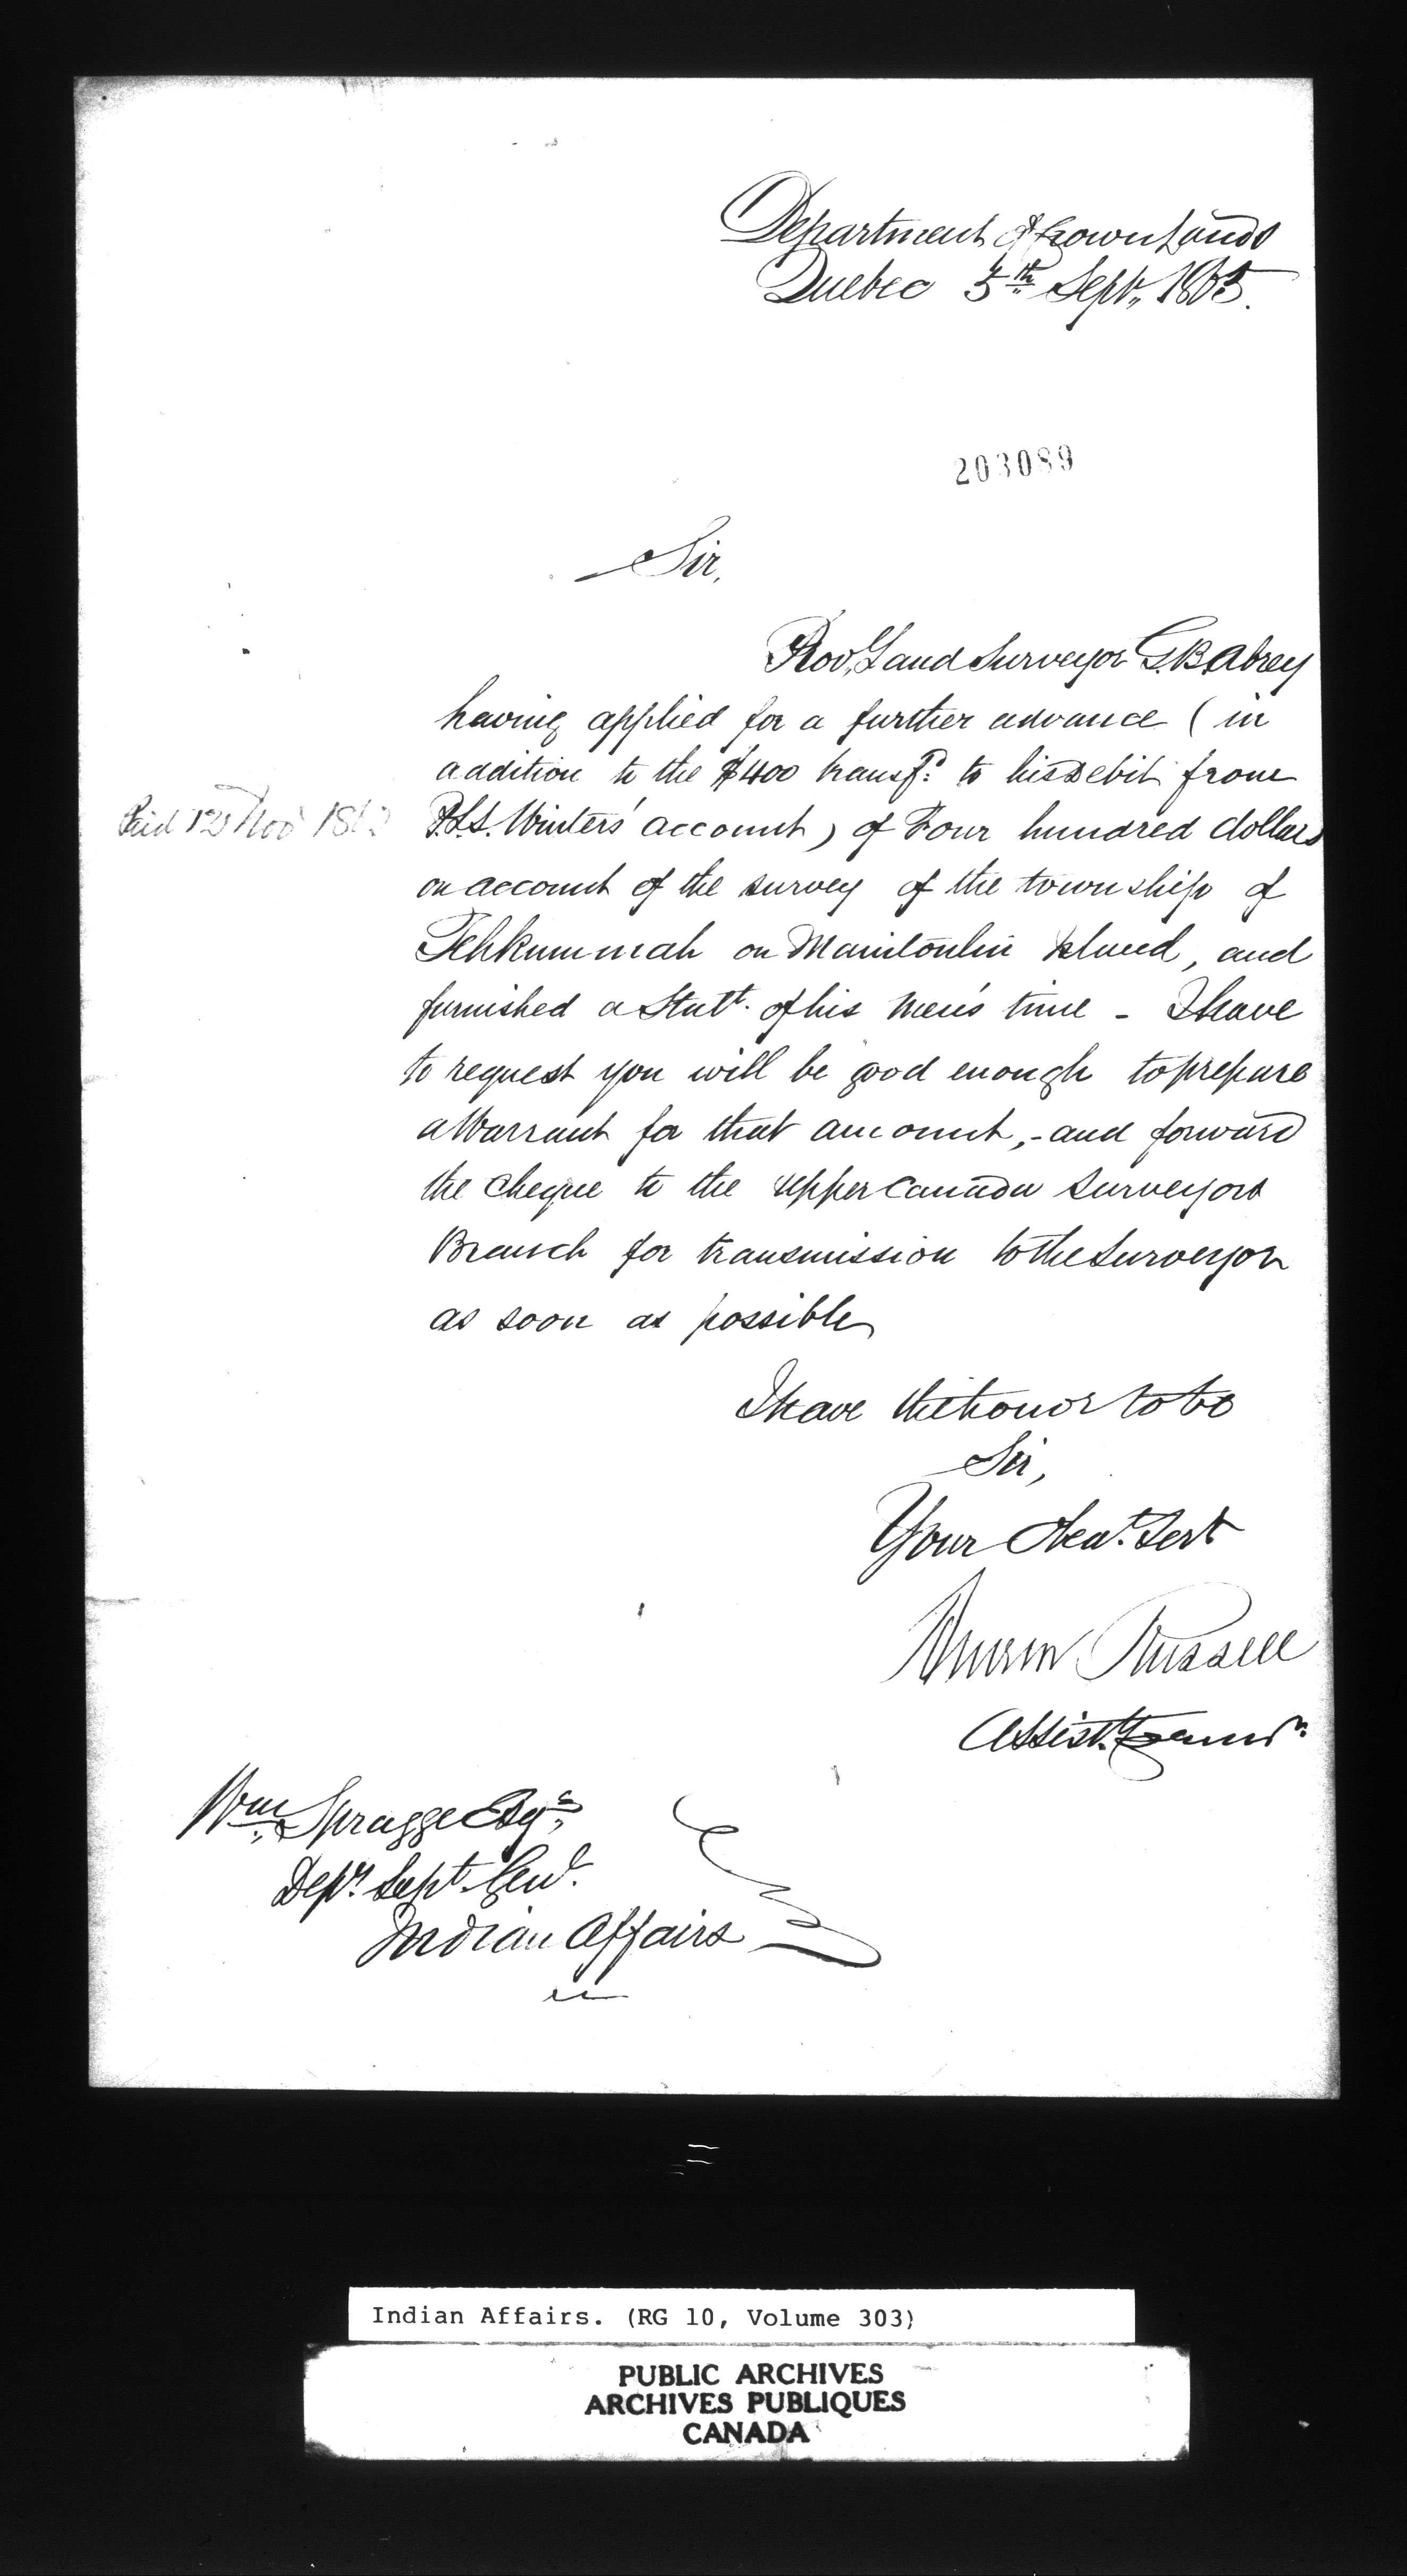 Department of Crown Lands
Quebec 5th Sept, 1865.
203089
Sir,
Prov. Land Surveyor G.B. Abrey
having applied for a further advance (in
addition to the $400 transfd. to his Debit from
Paid 12 Nov
P.L.S. Winters' account) of Four hundred dollars
on account of the survey of the township of
Tehkummah on Manitoulin Island, and
furnished a Statt. of his men's time - I have
to request you will be good enough to prepare
a Warrant for that amount, - and forward
the cheque to the Upper Canada Surveyors
Branch for transmission to the Surveyor
as soon as possible
I have the honor to be
Sir,
Your Obedt. Servt
Russell
Assist. Commr.
Wm. Spragge Esqre.,
Depy. Supt. Genl.
Indian Affairs
Indian Affairs. (RG 10, Volume 303)
PUBLIC ARCHIVES
ARCHIVES PUBLIQUES
CANADA